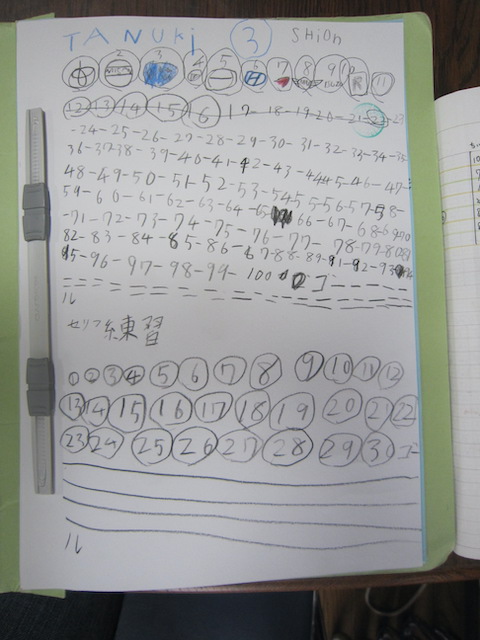 TANUKi 3 SHiOn
2 3 4 5 6 7 8 9 10 11
12 13 14 15 16 17-18-19-20-21-22-23
-24-25-26-27-28-29-30-31-32-33-34-35
36-37-38-39-40-41-42-43-44-45-46-47-
48-49-50-51-52-53-54-55-56-57-58-
59-60-61-62-63-64-65 66-67-68-69-70
-71-72-73-74-75-76-77-78-79-80-81
82-83-84-85-86-87-88-89-91-92-93
95-96-97-98-99-100 ゴー
ル
セリフ練習
1 2 3 4 5 6 7 8 9 10 11 12
13 14 15 16 17 18 19 20 21 22
23 24 25 26 27 28 29 30 ゴー
ル